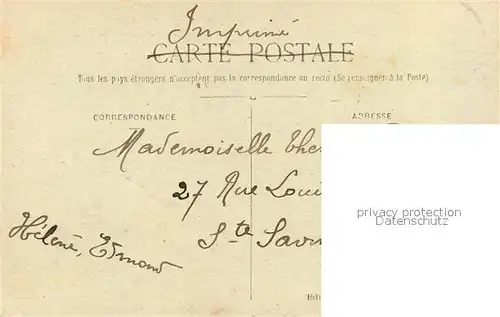 Imprimé
CARTE POSTALE
Tous les pays étrangers n'acceptent pas la correspondance au recto (Se renseigner à la Poste)
CORRESPONDANCE
ADRESSE
Mademoiselle The
27 Rue Loui
Ste Sav
Hélène, Edmond
privacy protection
Datenschutz
Edi